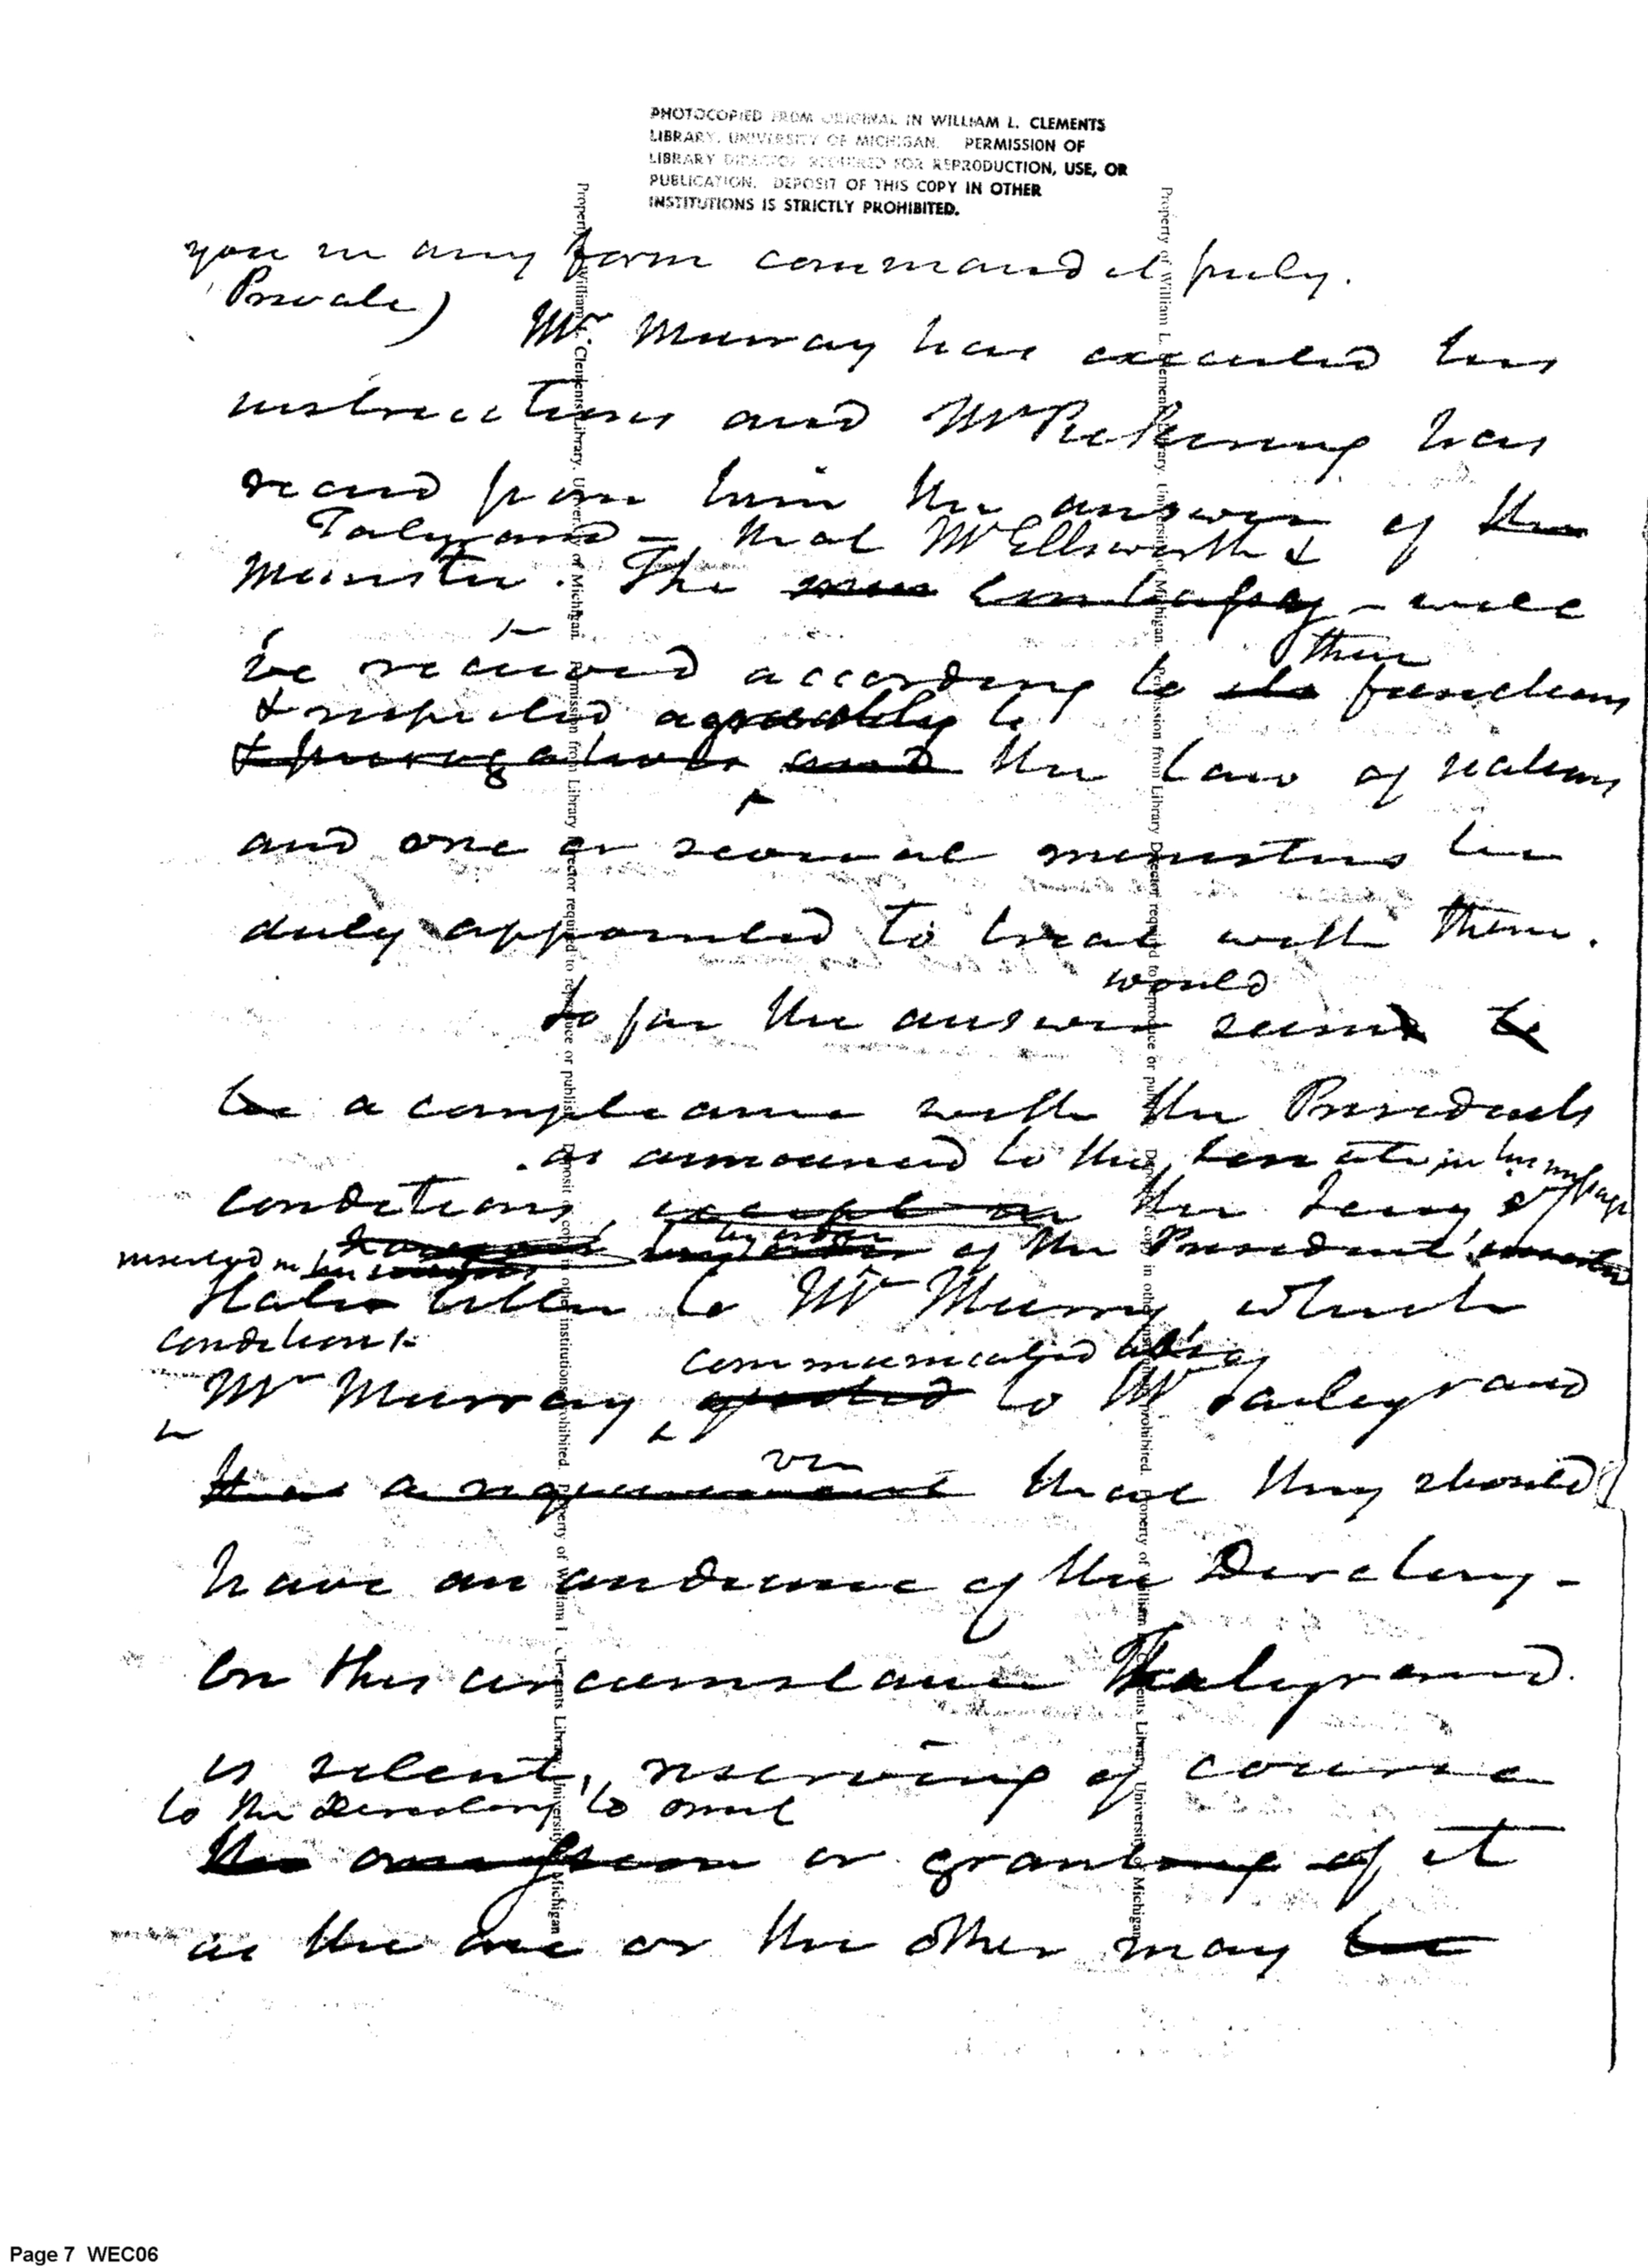 PHOTOCOPIED FROM ORIGINAL IN WILLIAM L. CLEMENTS
LIBRARY, UNIVERSITY OF MICHIGAN. PERMISSION OF
LIBRARY DIRECTOR REQUIRED FOR REPRODUCTION, USE, OR
PUBLICATION. DEPOSIT OF THIS COPY IN OTHER
INSTITUTIONS IS STRICTLY PROHIBITED.
you in any form command it freely.
Private)
Mr Murray has executed his
instructions and Mr Pickering has
recieved from him the answer of the
Talyrand – that Mr Ellsworth &
Minister. The embassy – will
be received according to its functions
their
& respected agreeably to
& prerogatives and the law of nations
and one or several ministers be
duly appointed to treat with them.
would
So far the answer seems to
be a compliance with the Presidents
as announced to the Senate in his message
conditions, except in the Secy of
by order of the President
inserted in his
States letter to Mr Murry, which
conditions
communicated
Mr Murray quoted to Mr Talleyrand
viz
was a requirement that they should
have an audience of the Directory –
On this circumstance Talleyrand
is silent, reserving of course
to the Directory to omit
the omission or granting of it
as the one or the other may be
Property of William L. Clements Library, University of Michigan. Permission from Library Director required to reproduce or publish. Deposit of copy in other institutions prohibited. Property of William L. Clements Library, University of Michigan
Property of William L. Clements Library, University of Michigan. Permission from Library Director required to reproduce or publish. Deposit of copy in other institutions prohibited. Property of William L. Clements Library, University of Michigan
Page 7 WEC06